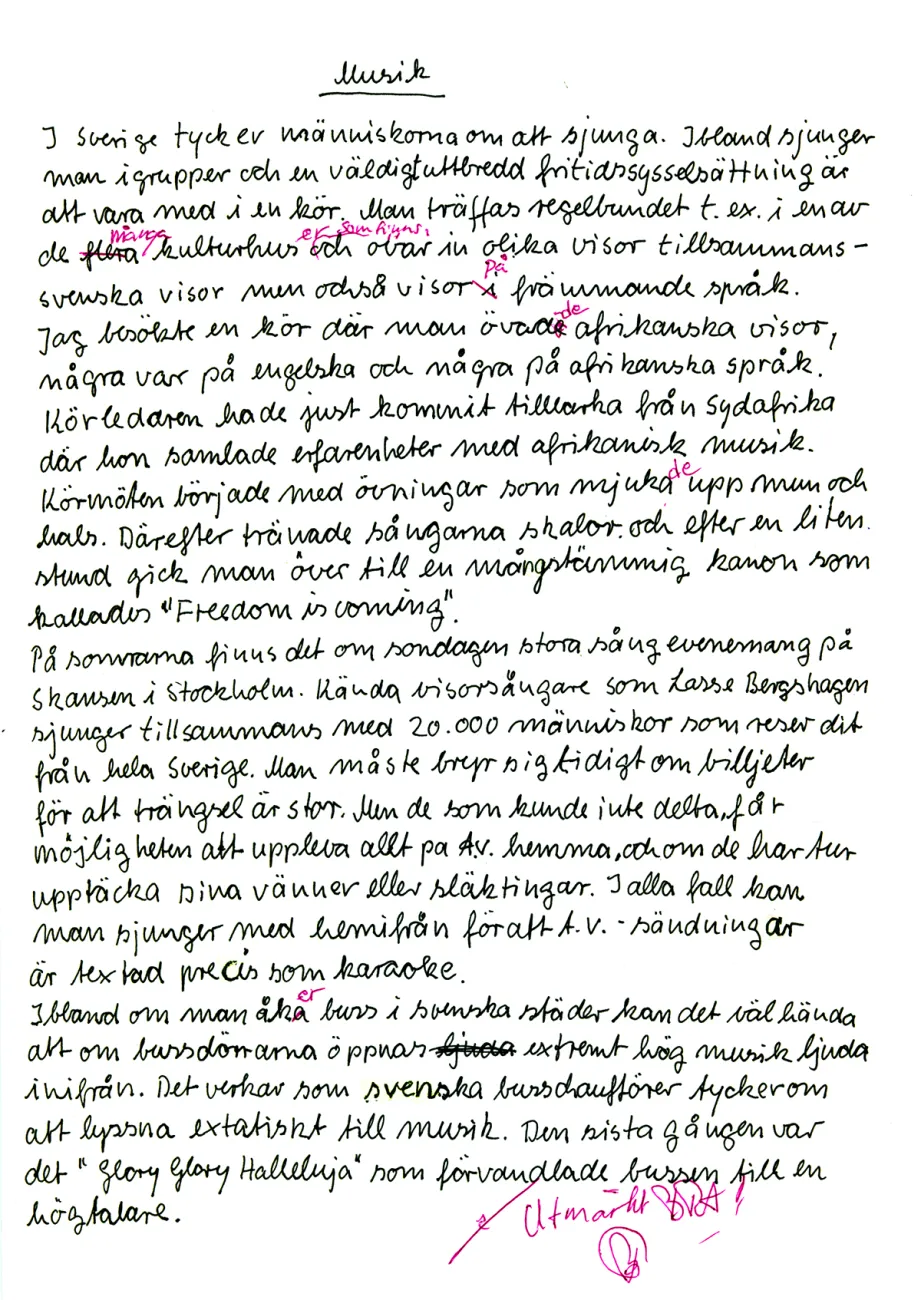 Musik
I Sverige tycker människorna om att sjunga. Ibland sjunger
man i grupper och en väldigt utbredd fritidssysselsättning är
att vara med i en kör. Man träffas regelbundet t. ex. i en av
många er som finns.
de flera kulturhus och övar in olika visor tillsammans -
på
svenska visor men också visor i främmande språk.
de
Jag besökte en kör där man övade afrikanska visor,
några var på engelska och några på afrikanska språk.
Körledaren hade just kommit tillbarka från Sydafrika
där hon samlade erfarenheter med afrikanisk musik.
de
Körmöten började med övningar som mjuka upp mun och
hals. Därefter tränade sångarna skalor och efter en liten
stund gick man över till en mångstämmig kanon som
kallades "Freedom is coming".
På somrarna finns det om sondagen stora sång evenemang på
Skansen i Stockholm. Kända visorsångare som Lasse Bergshagen
sjunger tillsammans med 20.000 människor som reser dit
från hela Sverige. Man måste breyr sig tidigt om billjeter
för att trängsel är stor. Men de som kunde inte delta, får
möjligheten att uppleva allt pa t.v. hemma, och om de har tur
upptäcka sina vänner eller släktingar. I alla fall kan
man sjunger med hemifrån för att t.v. - sändningar
är textad precis som karaoke.
er
Ibland om man åka buss i svenska städer kan det väl hända
att om bussdörrarna öppnas ljuda extremt hög musik ljuda
inifrån. Det verkar som svenska busschaufförer tycker om
att lyssna extatiskt till musik. Den sista gången var
det "Glory Glory Halleluja" som förvandlade bussen till en
högtalare.
Utmärkt BRA!